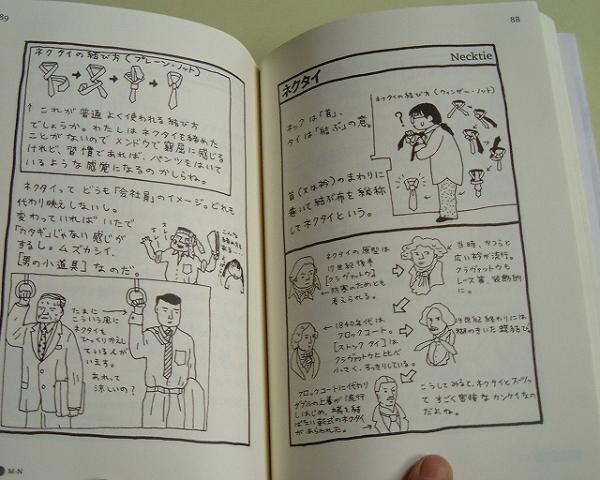 88
Necktie
ネクタイ
ネクタイの結び方(ウィンザー・ノット)
ネックは「首」、
タイは「結ぶ」の意。
?
首(又は衿)のまわりに
巻いて結ぶ布を総称
してネクタイという。
ネクタイの原型は
17世紀後半
[クラヴァット]
防寒のためとも
考えられる。
当時、かつらと
広い衿が流行。
クラヴァットも
レース等、装飾的
に。
19世紀終わりには
糊のきいた蝶結び。
1840年代は
フロックコート。
[ストック タイ]は
クラヴァットと比べ
小さく、すっきりしている。
フロックコートに代わり
ダブルの上着が流行
しはじめ、端を結
ばない形式のネクタイ
があらわれた。
こうしてみると、ネクタイとスーツって
すごく密接なカンケイなの
だよね。
89
ネクタイの結び方(プレーン・ノット)
↑ これが普通よく使われる結び方
でしょうか。わたしはネクタイを締めた
ことがないのでメンドウで窮屈に感じる
けれど、習慣であれば、パンツをはいて
いるような感覚になるのかしらね。
ネクタイって どうも「会社員」のイメージ。どれも
代わり映えしないし。
変わっていればいたで
「カタギ」じゃない感じが
するし。ムズカシイ、
[男の小道具]なのだ。
たまに
こういう風に
ネクタイ
ひっくり返え
している人が
います。
あれって
涼しいの?
M-N